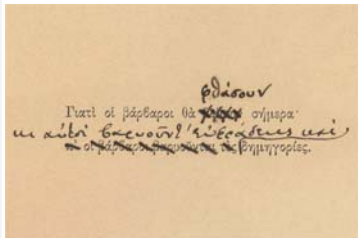 φθάσουν
Γιατὶ οἱ βάρβαροι θὰ σήμερα·
κι αὐτοὶ βαρυοῦντ' εὐφράδειες καὶ
οἱ βάρβαροι βαρυοῦνται δημηγορίες.